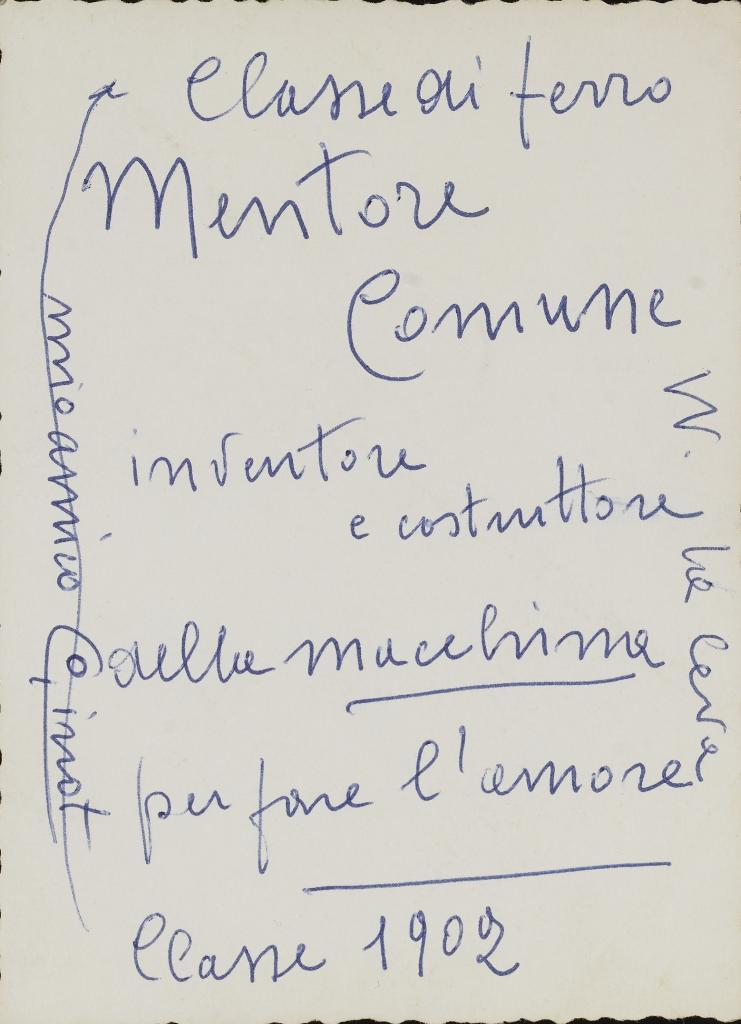 Classe di ferro
Mentore
Comune
inventore
e costruttore
della macchina
per fare l'amore
Classe 1902
mio amico
W. la leva